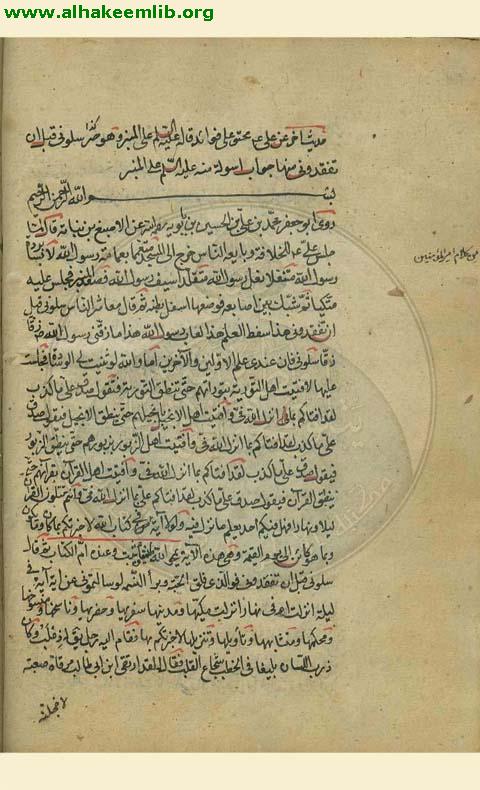 www.alhakeemlib.org
حديث آخر عن علي ع محتو على فوائد قاله عليه السلم على المنبر وهو سلوني قبل ان
تفقدوني منها جواب اسولة منه عليه السلم على المنبر
بسم الله الرحمن الرحيم
روى ابو جعفر محمد بن علي بن الحسين بن بابويه عن الاصبغ بن نباتة قال لما
جلس علي ع في الخلافة وبايعه الناس خرج الى المسجد متعمما بعمامة رسول الله لابسا بردة
رسول الله متنعلا بنعل رسول الله متقلدا سيف رسول الله فصعد المنبر فجلس عليه
متكيا ثم شبك بين اصابعه فوضعها اسفل بطنه ثم قال معاشر الناس سلوني قبل
ان تفقدوني هذا سفط العلم هذا لعاب رسول الله هذا ما زقني رسول الله زقا
زقا سلوني فان عندي علم الاولين والآخرين اما والله لو ثنيت لي الوسادة فجلست
عليها لافتيت اهل التورية بتوراتهم حتى تنطق التورية فتقول صدق علي ما كذب
لقد افتاكم بما انزل الله في وافتيت اهل الانجيل بانجيلهم حتى ينطق الانجيل فيقول صدق
علي ما كذب لقد افتاكم بما انزل الله في وافتيت اهل الزبور بزبورهم حتى ينطق الزبور
فيقول صدق علي ما كذب لقد افتاكم بما انزل الله في وافتيت اهل القرآن بقرآنهم حتى
ينطق القرآن فيقول صدق علي ما كذب لقد افتاكم علي بما انزل الله في وانتم تتلون القرآن
ليلا ونهارا فهل فيكم احد يعلم ما نزل فيه ولولا آية في كتاب الله لاخبرتكم بما كان وما يكون
وما هو كائن الى يوم القيمة وهي هذه الآية يمحو الله ما يشاء ويثبت وعنده ام الكتاب ثم قال
سلوني قبل ان تفقدوني فوالذي فلق الحبة وبرأ النسمة لو سالتموني عن اية آية في
ليلة انزلت او في نهار انزلت مكيها ومدنيها سفريها وحضريها وناسخها ومنسوخها
ومحكمها ومتشابهها وتأويلها وتنزيلها لاخبرتكم بها فقام اليه رجل يقال له ذعلب وكان
ذرب اللسان بليغا في الخطب شجاع القلب فقال لقد ارتقى ابن ابي طالب مرقاة صعبة
من كلام امير المؤمنين
لاخجلنه